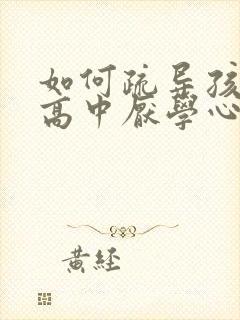 如何疏导孩
高中厌學心
黄经